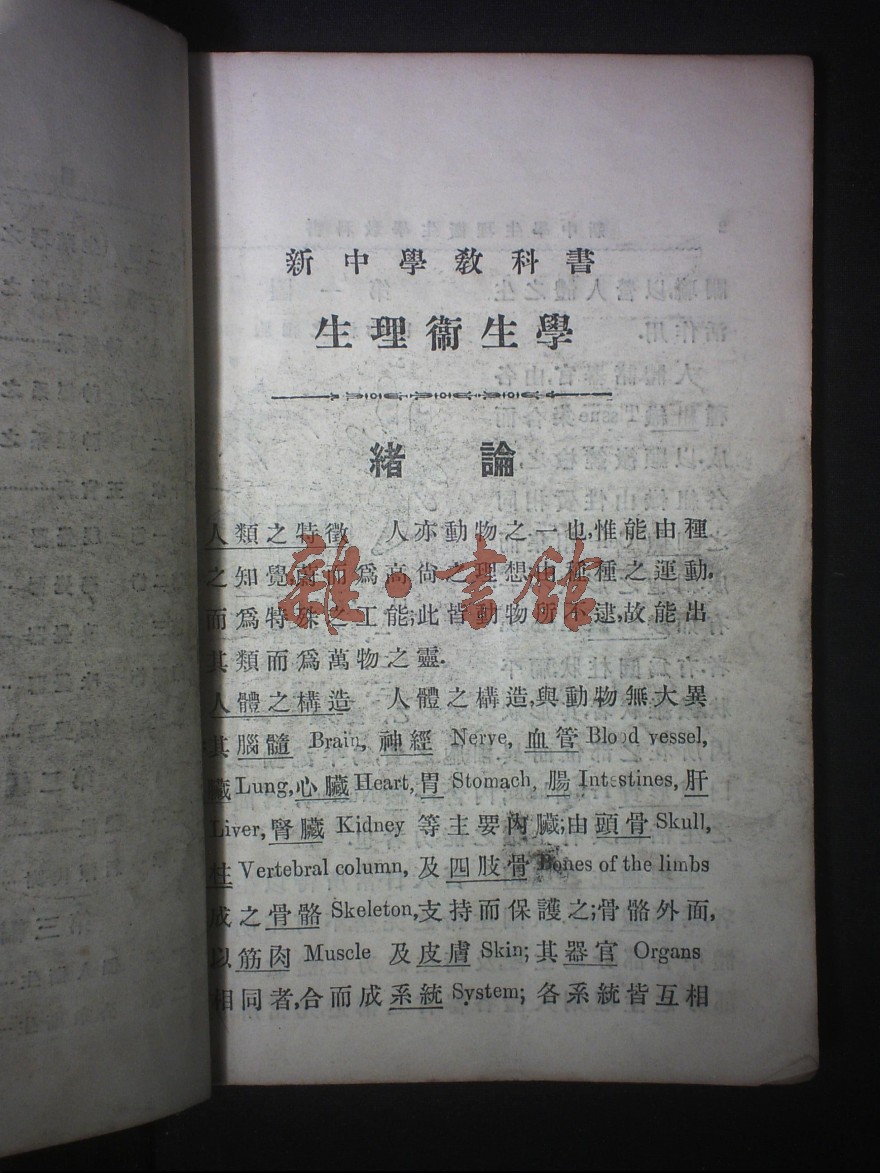 新中學教科書
生理衞生學
緒論
人類之特徵 人亦動物之一也,惟能由種
之知覺,蔚而爲高尙之理想,由種種之運動,
而爲特殊之工能;此皆動物所不逮,故能出
其類而爲萬物之靈.
人體之構造 人體之構造,與動物無大異
其腦髓 Brain, 神經 Nerve, 血管 Blood vessel,
臟 Lung, 心臟 Heart, 胃 Stomach, 腸 Intestines, 肝
Liver, 腎臟 Kidney 等主要內臟;由頭骨 Skull,
柱 Vertebral column, 及四肢骨 Bones of the limbs
成之骨骼 Skeleton, 支持而保護之;骨骼外面,
以筋肉 Muscle 及皮膚 Skin; 其器官 Organs
相同者,合而成系統 System; 各系統皆互相
雜·書館